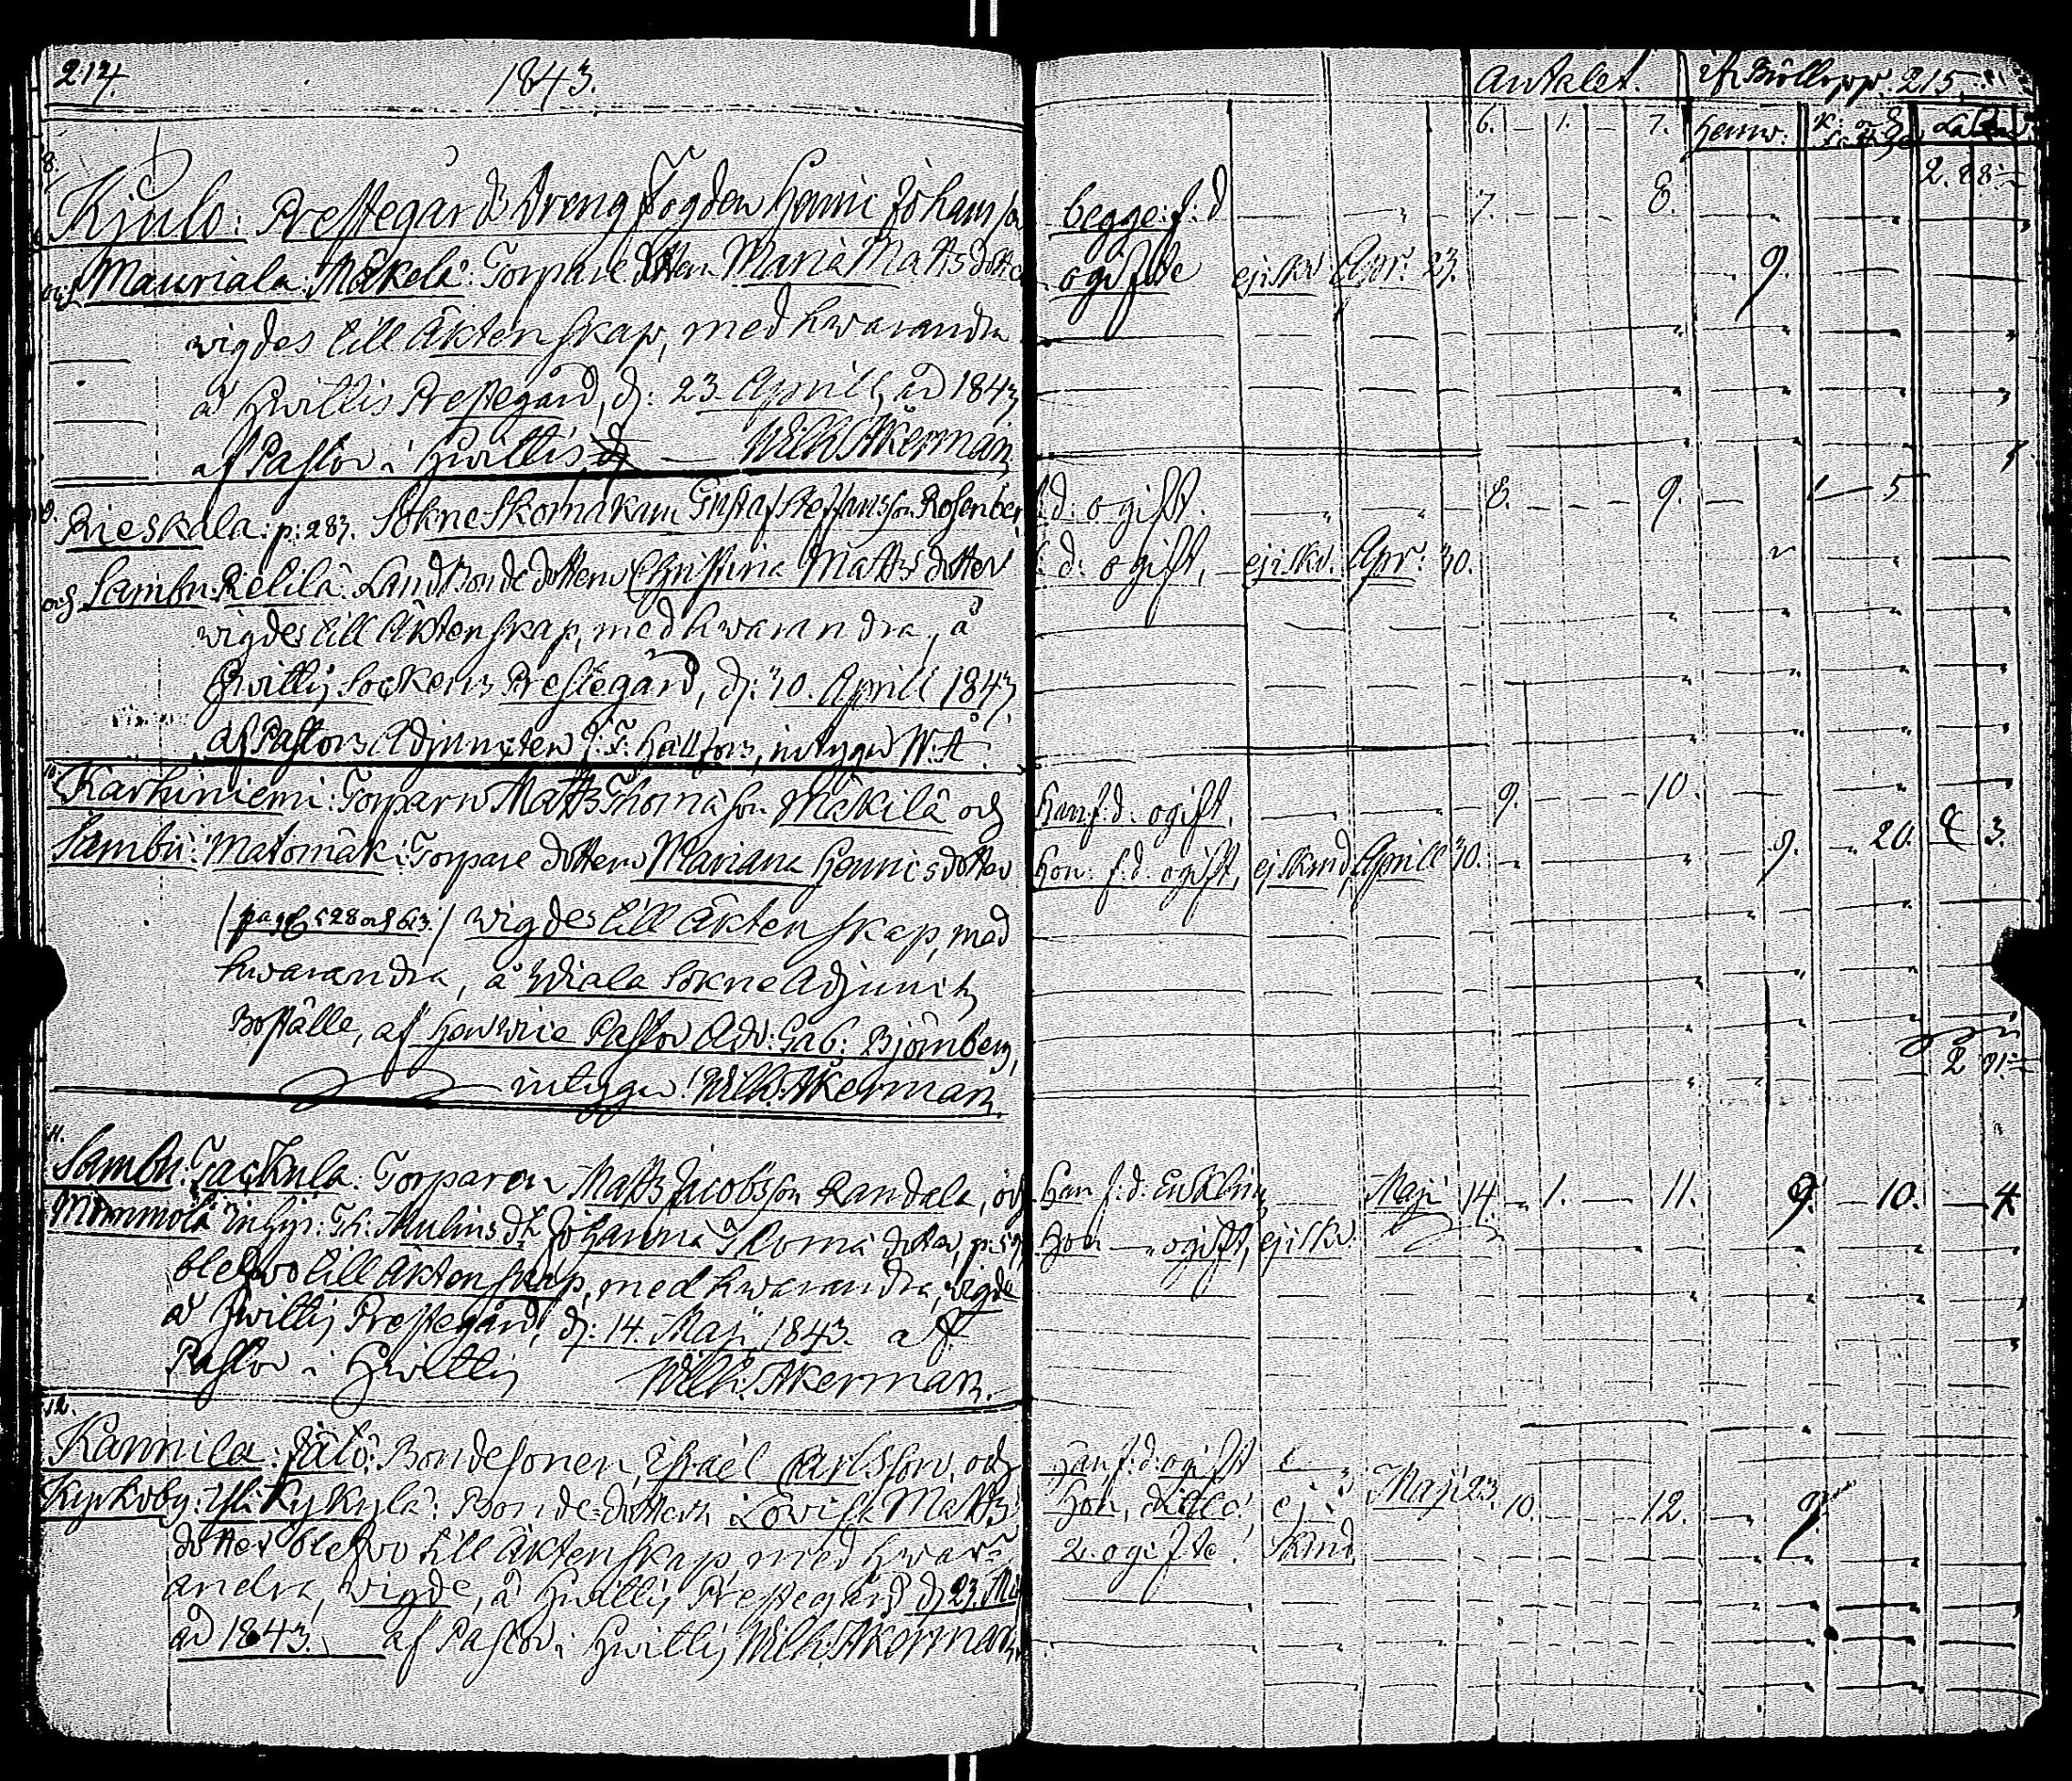 214.
1843.
8.
Kjulo: Prestegårds Dreng Fogden Henric Johansson
och Mauriala: Mäkelä: Torpare dottern Maria Matts dotter
wigdes till Äktenskap, med hwarandra
å Hwittis Prestegård, d: 23. Aprill, år 1843
af Pastor i Hwittis Wilh. Åkerman
9. Rieskala: p: 283. Sokne Skomakarn Gustaf Rosenberg
och Sambu: Relilä: Landbonde dottern Christina Matts dotter
wigdes till Äktenskap, med hwarandra, å
Hwittis Sockens Prestegård, d: 30. Aprill 1843,
af Pastors Adjuncten J: F: Hallfors, intygar W: Å
10. Karhiniemi: Torparn Matts Thomasson Mäkilä och
Sambu: Matomäki: Torpare dottern Mariana Henricsdotter
/pag 528 och 613./ wigdes till Äktenskap, med
hwarandra, å Wiala Sokne Adjuncts
Boställe, af Pastor Adv: Gab: Björnberg,
intygar: Wilh. Åkerman.
11.
Sambu: Jackula: Torparen Matts Jacobsson Randala, och
Mommola Inhys: Johanna Thomæ dotter,
blefwo till Äktenskap, med hwarandra, wigde
å Hwittis Prestegård, d: 14. Maji 1843. af
Pastor i Hwittis Wilh. Åkerman.
12.
Kannila: Jälö: Bondesonen, Israël Carlsson, och
Kyrkoby: Yli Kylä: Bonde-dottern Lovisa Matts
dotter blefwo till Äktenskap med hwar-
andra, wigde, å Hwittis Prestegård d 23. Maj
år 1843. af Pastor i Hwittis Wilh. Åkerman
Antalet. af Bröllopp. 215.
6. 1. 7. Hemw.
2. 88
begge: f: d 7. 8.
ogifte ej skr Apr: 23. 9.
f: d: ogift. 8. 9. 5
f: d: ogift, ej skr. Apr: 30.
Han f: d. ogift. 9. 10.
Hon: f: d. ogift, ej skrud, Aprill 30. 9. 20. 3.
2 91
Han f: d: Enkling Maji 14. 1. 11. 9. 10. 4.
Hon ogift, ej skr
Han f: d: ogift
Hon, ditto, ej Maji 23. 10. 12. 9.
2. ogifte! skrud